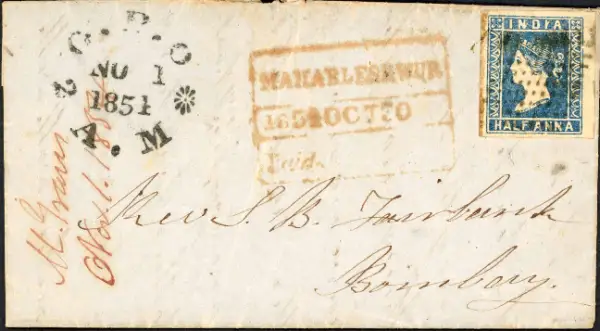 G.P.O
NO 1
1854
A.M
MAHABLESHWUR
1854 OCT 30
Paid.
INDIA
HALF ANNA
Nov 1. 1854
Rev S. B. Fairbank
Bombay.